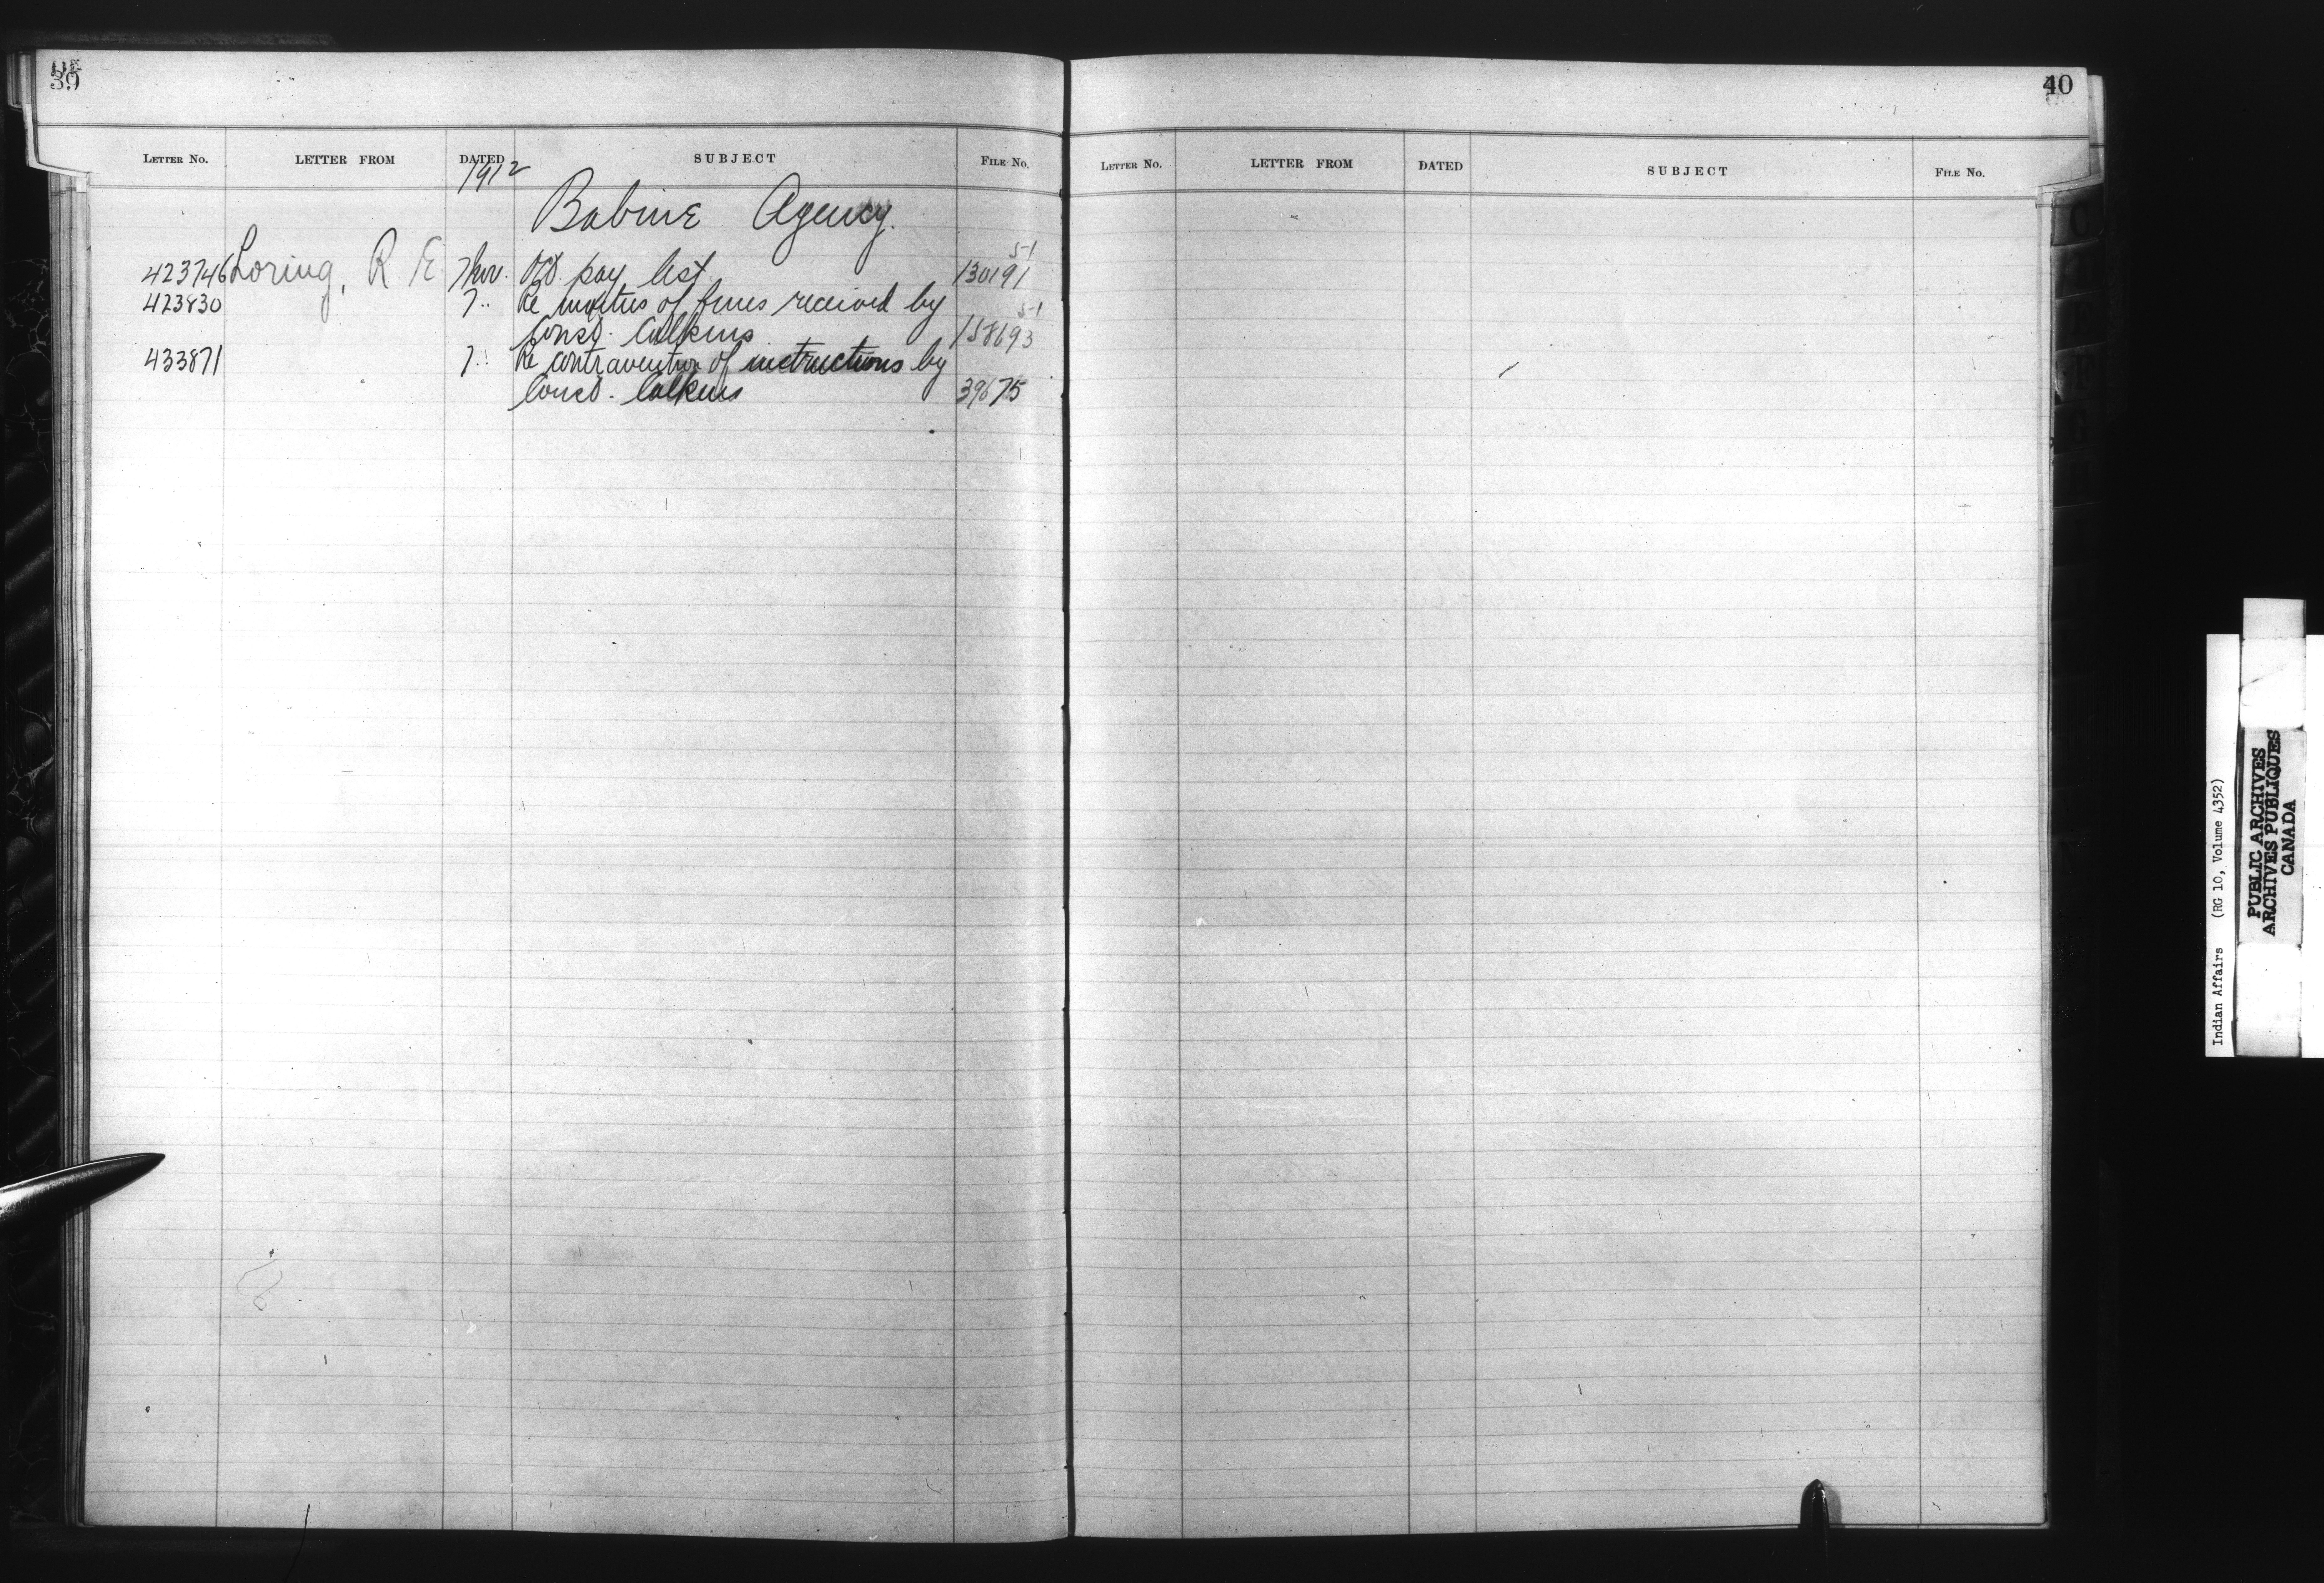 39
LETTER NO. LETTER FROM DATED SUBJECT FILE NO.
1912
Babine Agency.
5-1
423746 Loring, R. E. 7 Nov. pay list 130191
423830 7 " Re moities of fines received by 5-1
Const. Calkins 158693
433871 7 " Re contravention of instructions by
Const. Calkins 39675
40
LETTER NO. LETTER FROM DATED SUBJECT FILE NO.
Indian Affairs (RG 10, Volume 4352)
PUBLIC ARCHIVES
ARCHIVES PUBLIQUES
CANADA